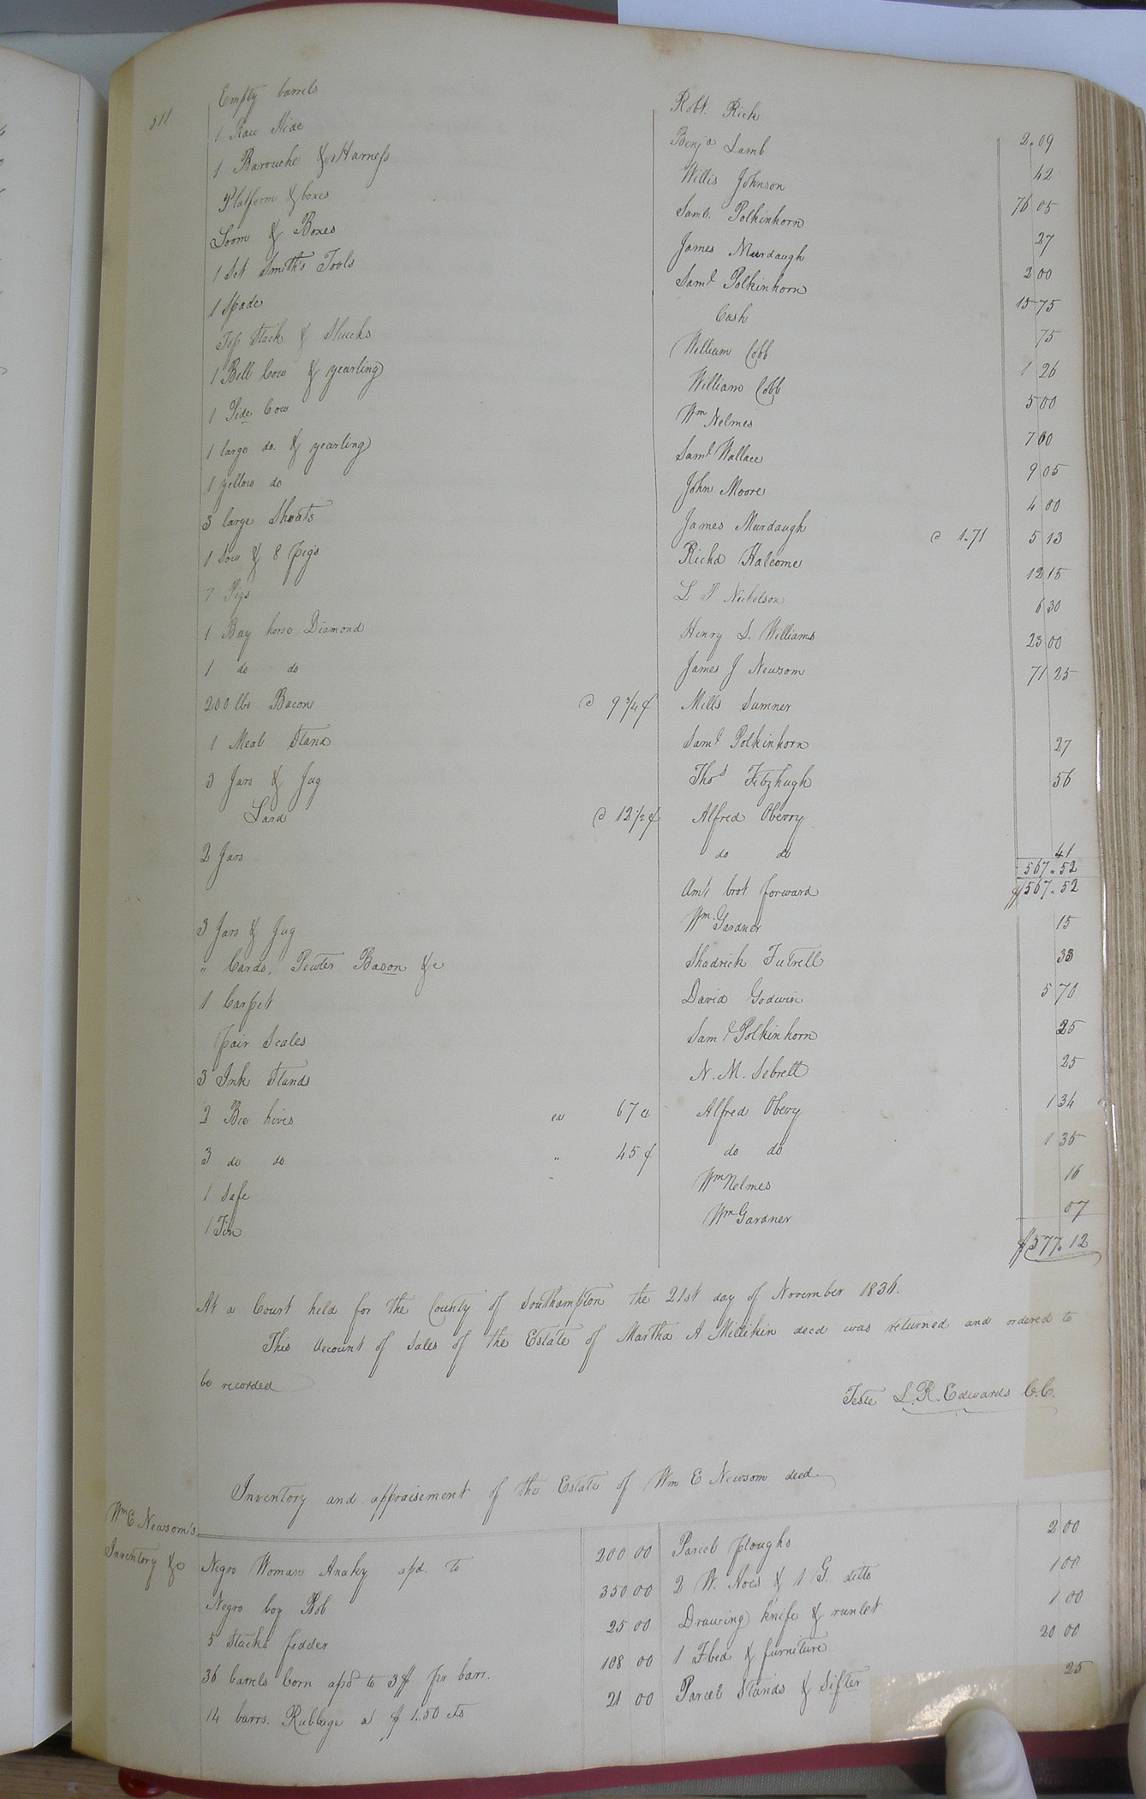 511
Empty barrels Robt. Rick 2.09
1 Raw Hide Benja Lamb 42
1 Barouche & Harness Willis Johnson 76 05
Platform & boxes Saml. Polkinhorn 27
Loom & Boxes James Murdaugh 2 00
1 Set Smith's Tools Saml Polkinhorn 15 75
1 Spade Cash 75
Top Stack & Shucks William Cobb 1 26
1 Bell Cow & yearling William Cobb 5 00
1 Pide Cow Wm Nelmes 7 00
1 large do. & yearling Saml Wallace 9 05
1 yellow do John Moore 4 00
3 large Shoats James Murdaugh @ 1.71 5 13
1 Sow & 8 pigs Richd Halcome 12 15
7 Pigs L P Nicholson 6 30
1 Bay horse Diamond Henry L. Williams 23 00
1 do do James J Newsom 71 25
200 lbs Bacon @ 9 3/4 ¢ Mills Sumner
1 Meal Stand Saml Polkinhorn 27
3 Jars & Jug Thos Fitzhugh 56
Lard @ 12 1/2 ¢ Alfred Oberry
2 Jars do do 41
567.52
Amt brot forward $567.52
3 Jars & Jug Wm. Gardner 15
" Cards, Pewter Bason &c Shadrick Futrell 33
1 Carpet David Godwin 5 70
pair Scales Saml Polkinhorn 25
3 Ink Stands N. M. Sebrell 25
2 Bee hives ea 67 c Alfred Obery 1 34
3 do do " 45 ¢ do do 1 35
1 Safe Wm Nelmes 16
1 Tin Wm Gardner 07
$577.12
At a Court held for the County of Southampton the 21st day of November 1836.
This Account of Sales of the Estate of Martha A Millikin decd was returned and ordered to
be recorded
Teste L. R. Edwards C.C.
Inventory and appraisement of the Estate of Wm E Newsom decd.
Wm E Newsom's
Inventory &c
Negro Woman Anaky apd. to 200 00 Parcel ploughs 2 00
Negro boy Bob 350 00 2 W. Hoes & 1 G. ditto 1 00
5 Stacks fodder 25 00 Drawing knife & runlet 1 00
36 barrels Corn apd to 3$ pr barr. 108 00 1 F bed & furniture 20 00
14 barrs. Rubbage at $ 1.50 cts 21 00 Parcel Stands & Sifter 25